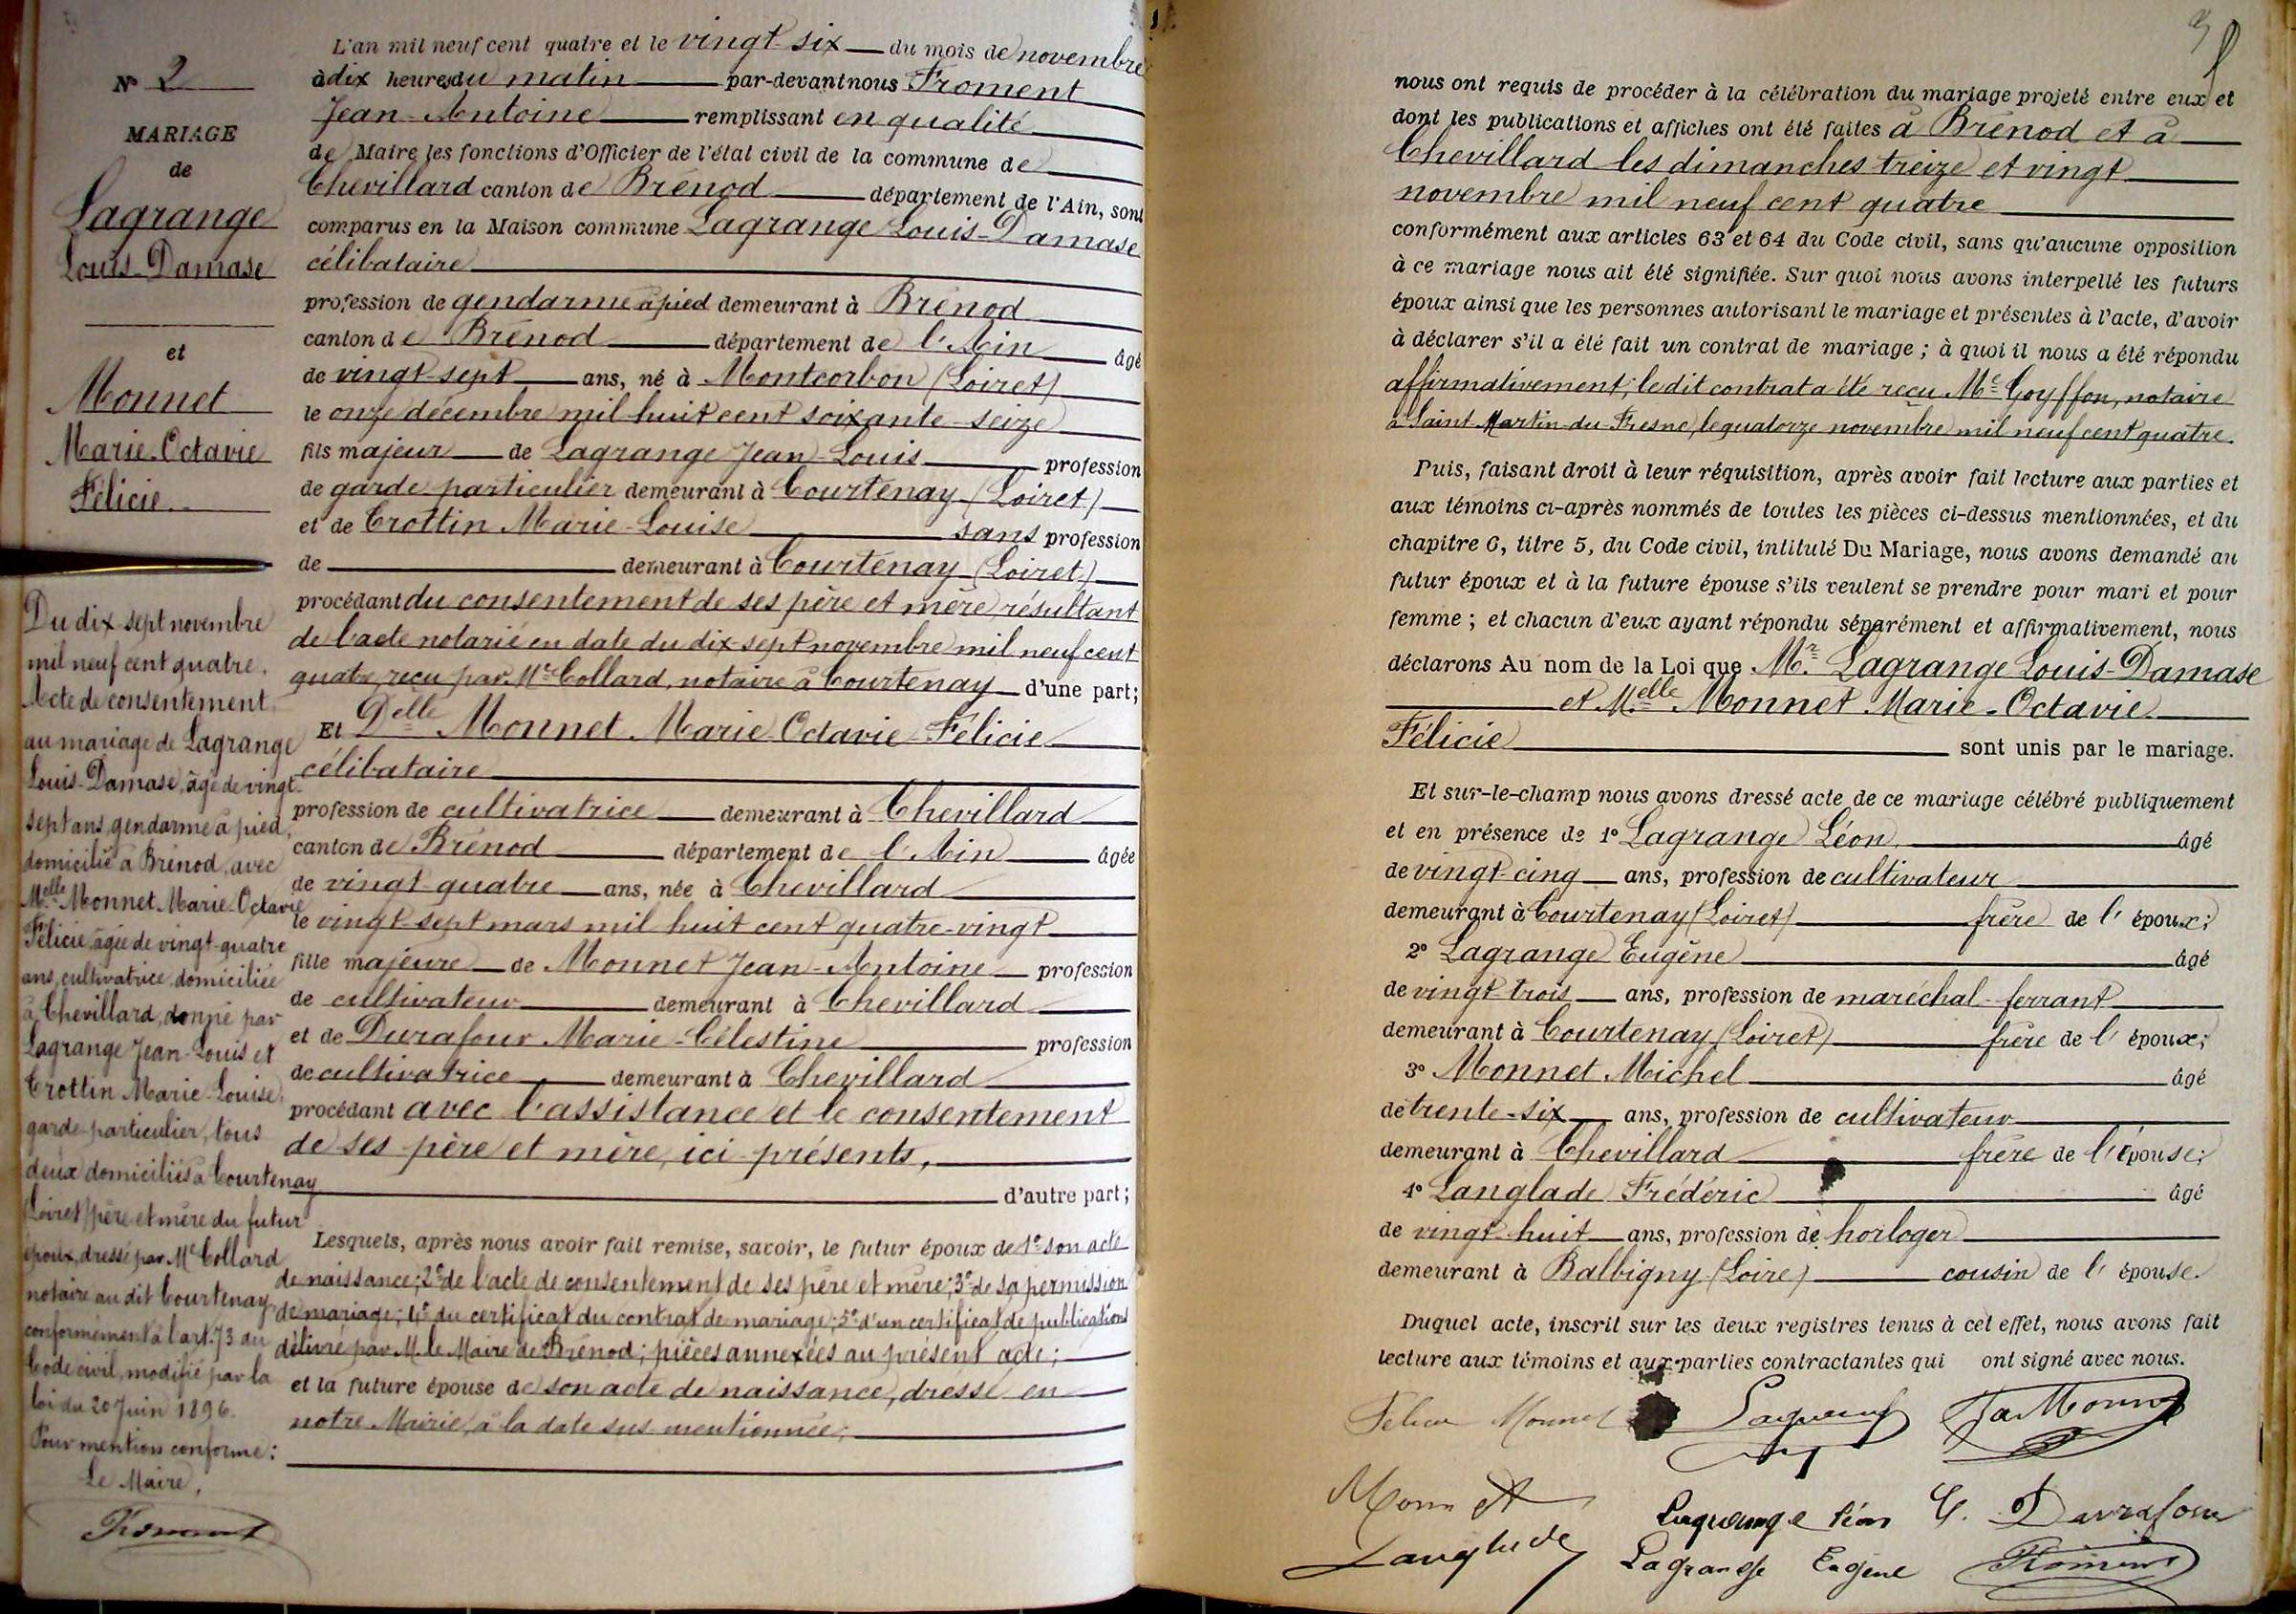 N° 2
MARIAGE
de
Lagrange
Louis-Damase
et
Monnet
Marie-Octavie
Félicie
Du dix-sept novembre
mil neuf cent quatre.
Acte de consentement
au mariage de Lagrange
Louis-Damase, âgé de vingt-
sept ans, gendarme à pied,
domicilié à Brénod, avec
Melle Monnet Marie-Octavie
Félicie, âgée de vingt-quatre
ans, cultivatrice, domiciliée
à Chevillard, donné par
Lagrange Jean-Louis et
Crottin Marie-Louise,
garde-particulier, tous
deux domiciliés à Courtenay
(Loiret) père et mère du futur
époux, dressé par Me Collard
notaire au dit Courtenay,
conformément à l'art. 73 du
Code civil, modifié par la
loi du 20 Juin 1896.
Pour mention conforme:
Le Maire,
Froment
L'an mil neuf cent quatre et le vingt-six du mois de novembre
à dix heures du matin par-devant nous Froment
Jean-Antoine remplissant en qualité
de Maire les fonctions d'Officier de l'état civil de la commune de
Chevillard canton de Brénod département de l'Ain, sont
comparus en la Maison commune Lagrange Louis-Damase
célibataire
profession de gendarme à pied demeurant à Brénod
canton de Brénod département de l'Ain âgé
de vingt-sept ans, né à Montcorbon (Loiret)
le onze décembre mil huit cent soixante-seize
fils majeur de Lagrange Jean-Louis profession
de garde particulier demeurant à Courtenay (Loiret)
et de Crottin Marie-Louise sans profession
de demeurant à Courtenay (Loiret)
procédant du consentement de ses père et mère, résultant
de l'acte notarié en date du dix-sept novembre mil neuf cent
quatre, reçu par Me Collard, notaire à Courtenay d'une part;
Et Delle Monnet Marie Octavie Félicie
célibataire
profession de cultivatrice demeurant à Chevillard
canton de Brénod département de l'Ain âgée
de vingt-quatre ans, née à Chevillard
le vingt-sept mars mil huit cent quatre-vingt
fille majeure de Monnet Jean-Antoine profession
de cultivateur demeurant à Chevillard
et de Durafour Marie-Célestine profession
de cultivatrice demeurant à Chevillard
procédant avec l'assistance et le consentement
de ses père et mère, ici présents,
d'autre part;
Lesquels, après nous avoir fait remise, savoir, le futur époux de 1° son acte
de naissance; 2° de l'acte de consentement de ses père et mère; 3° de sa permission
de mariage; 4° du certificat du contrat de mariage; 5° d'un certificat de publications
délivré par M. le Maire de Brénod; pièces annexées au présent acte;
et la future épouse de son acte de naissance, dressé en
notre Mairie, à la date sus-mentionnée;
nous ont requis de procéder à la célébration du mariage projeté entre eux et
dont les publications et affiches ont été faites à Brénod et à
Chevillard les dimanches treize et vingt
novembre mil neuf cent quatre
conformément aux articles 63 et 64 du Code civil, sans qu'aucune opposition
à ce mariage nous ait été signifiée. Sur quoi nous avons interpellé les futurs
époux ainsi que les personnes autorisant le mariage et présentes à l'acte, d'avoir
à déclarer s'il a été fait un contrat de mariage; à quoi il nous a été répondu
affirmativement; le dit contrat a été reçu Me Goyffon, notaire
à Saint-Martin-du-Fresne, le quatorze novembre mil neuf cent quatre.
Puis, faisant droit à leur réquisition, après avoir fait lecture aux parties et
aux témoins ci-après nommés de toutes les pièces ci-dessus mentionnées, et du
chapitre 6, titre 5, du Code civil, intitulé Du Mariage, nous avons demandé au
futur époux et à la future épouse s'ils veulent se prendre pour mari et pour
femme; et chacun d'eux ayant répondu séparément et affirmativement, nous
déclarons Au nom de la Loi que Mr. Lagrange Louis-Damase
et Melle Monnet Marie-Octavie
Félicie sont unis par le mariage.
Et sur-le-champ nous avons dressé acte de ce mariage célébré publiquement
et en présence de 1° Lagrange Léon âgé
de vingt-cinq ans, profession de cultivateur
demeurant à Courtenay (Loiret) frère de l'époux;
2° Lagrange Eugène âgé
de vingt-trois ans, profession de maréchal-ferrant
demeurant à Courtenay (Loiret) frère de l'époux;
3° Monnet Michel âgé
de trente-six ans, profession de cultivateur
demeurant à Chevillard frère de l'épouse;
4° Langlade Frédéric âgé
de vingt-huit ans, profession de horloger
demeurant à Balbigny (Loire) cousin de l'épouse.
Duquel acte, inscrit sur les deux registres tenus à cet effet, nous avons fait
lecture aux témoins et aux parties contractantes qui ont signé avec nous.
Félicie Monnet Lagrange Monnet
Monnet Lagrange Léon Durafour
Langlade Lagrange Eugène Froment